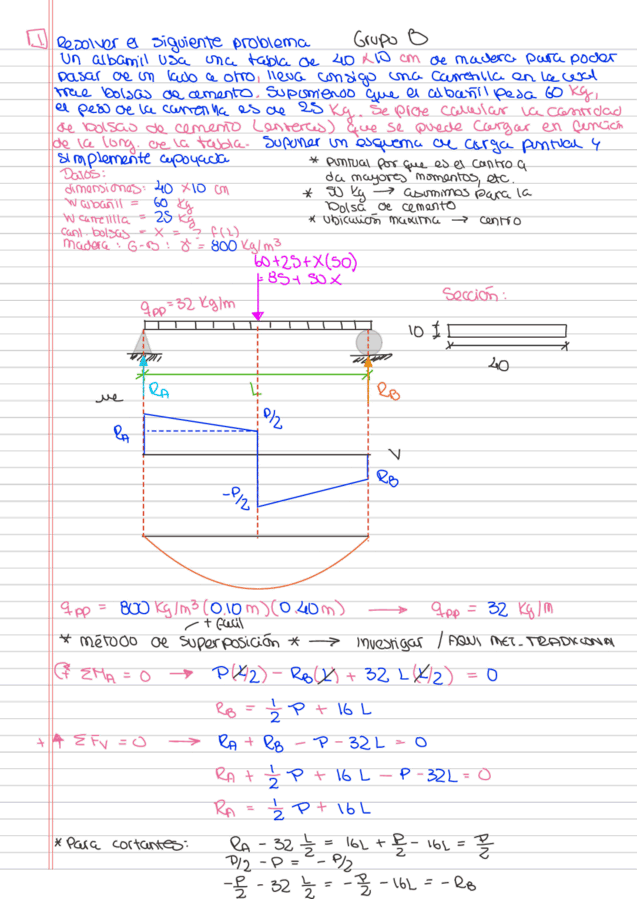 1 Resolver el siguiente problema Grupo B
Un albañil usa una tabla de 40 x 10 cm de madera para poder
pasar de un lado a otro, lleva consigo una carretilla en la cual
trae bolsas de cemento. Suponiendo que el albañil pesa 60 Kg,
el peso de la carretilla es de 25 Kg. Se pide calcular la cantidad
de bolsas de cemento (enteras) que se puede cargar en función
de la long. de la tabla. Suponer un esquema de carga puntual y
simplemente apoyada
* Puntual por que es el centro q
da mayores momentos, etc.
* 50 Kg → asumimos para la
bolsa de cemento
* Ubicación maxima → centro
Datos:
dimensiones: 40 x 10 cm
W albañil = 60 Kg
W carretilla = 25 Kg
cant. bolsas = x = ? f(L)
madera: G-B: γ = 800 Kg/m³
60+25+X(50)
=85+50X
qpp = 32 Kg/m
Sección:
10
40
RA
L
RB
P/2
RA
V
-P/2
RB
qpp = 800 Kg/m³ (0.10 m)(0.40 m) → qpp = 32 Kg/m
+ facil
* método de superposición * → investigar / AQUI MET. TRADICIONAL
ΣMA = 0 → P(L/2) - RB(L) + 32 L(L/2) = 0
RB = 1/2 P + 16 L
+ ↑ ΣFV = 0 → RA + RB - P - 32L = 0
RA + 1/2 P + 16 L - P - 32L = 0
RA = 1/2 P + 16L
* Para cortantes: RA - 32 L/2 = 16L + P/2 - 16L = P/2
P/2 - P = - P/2
-P/2 - 32 L/2 = -P/2 - 16L = -RB